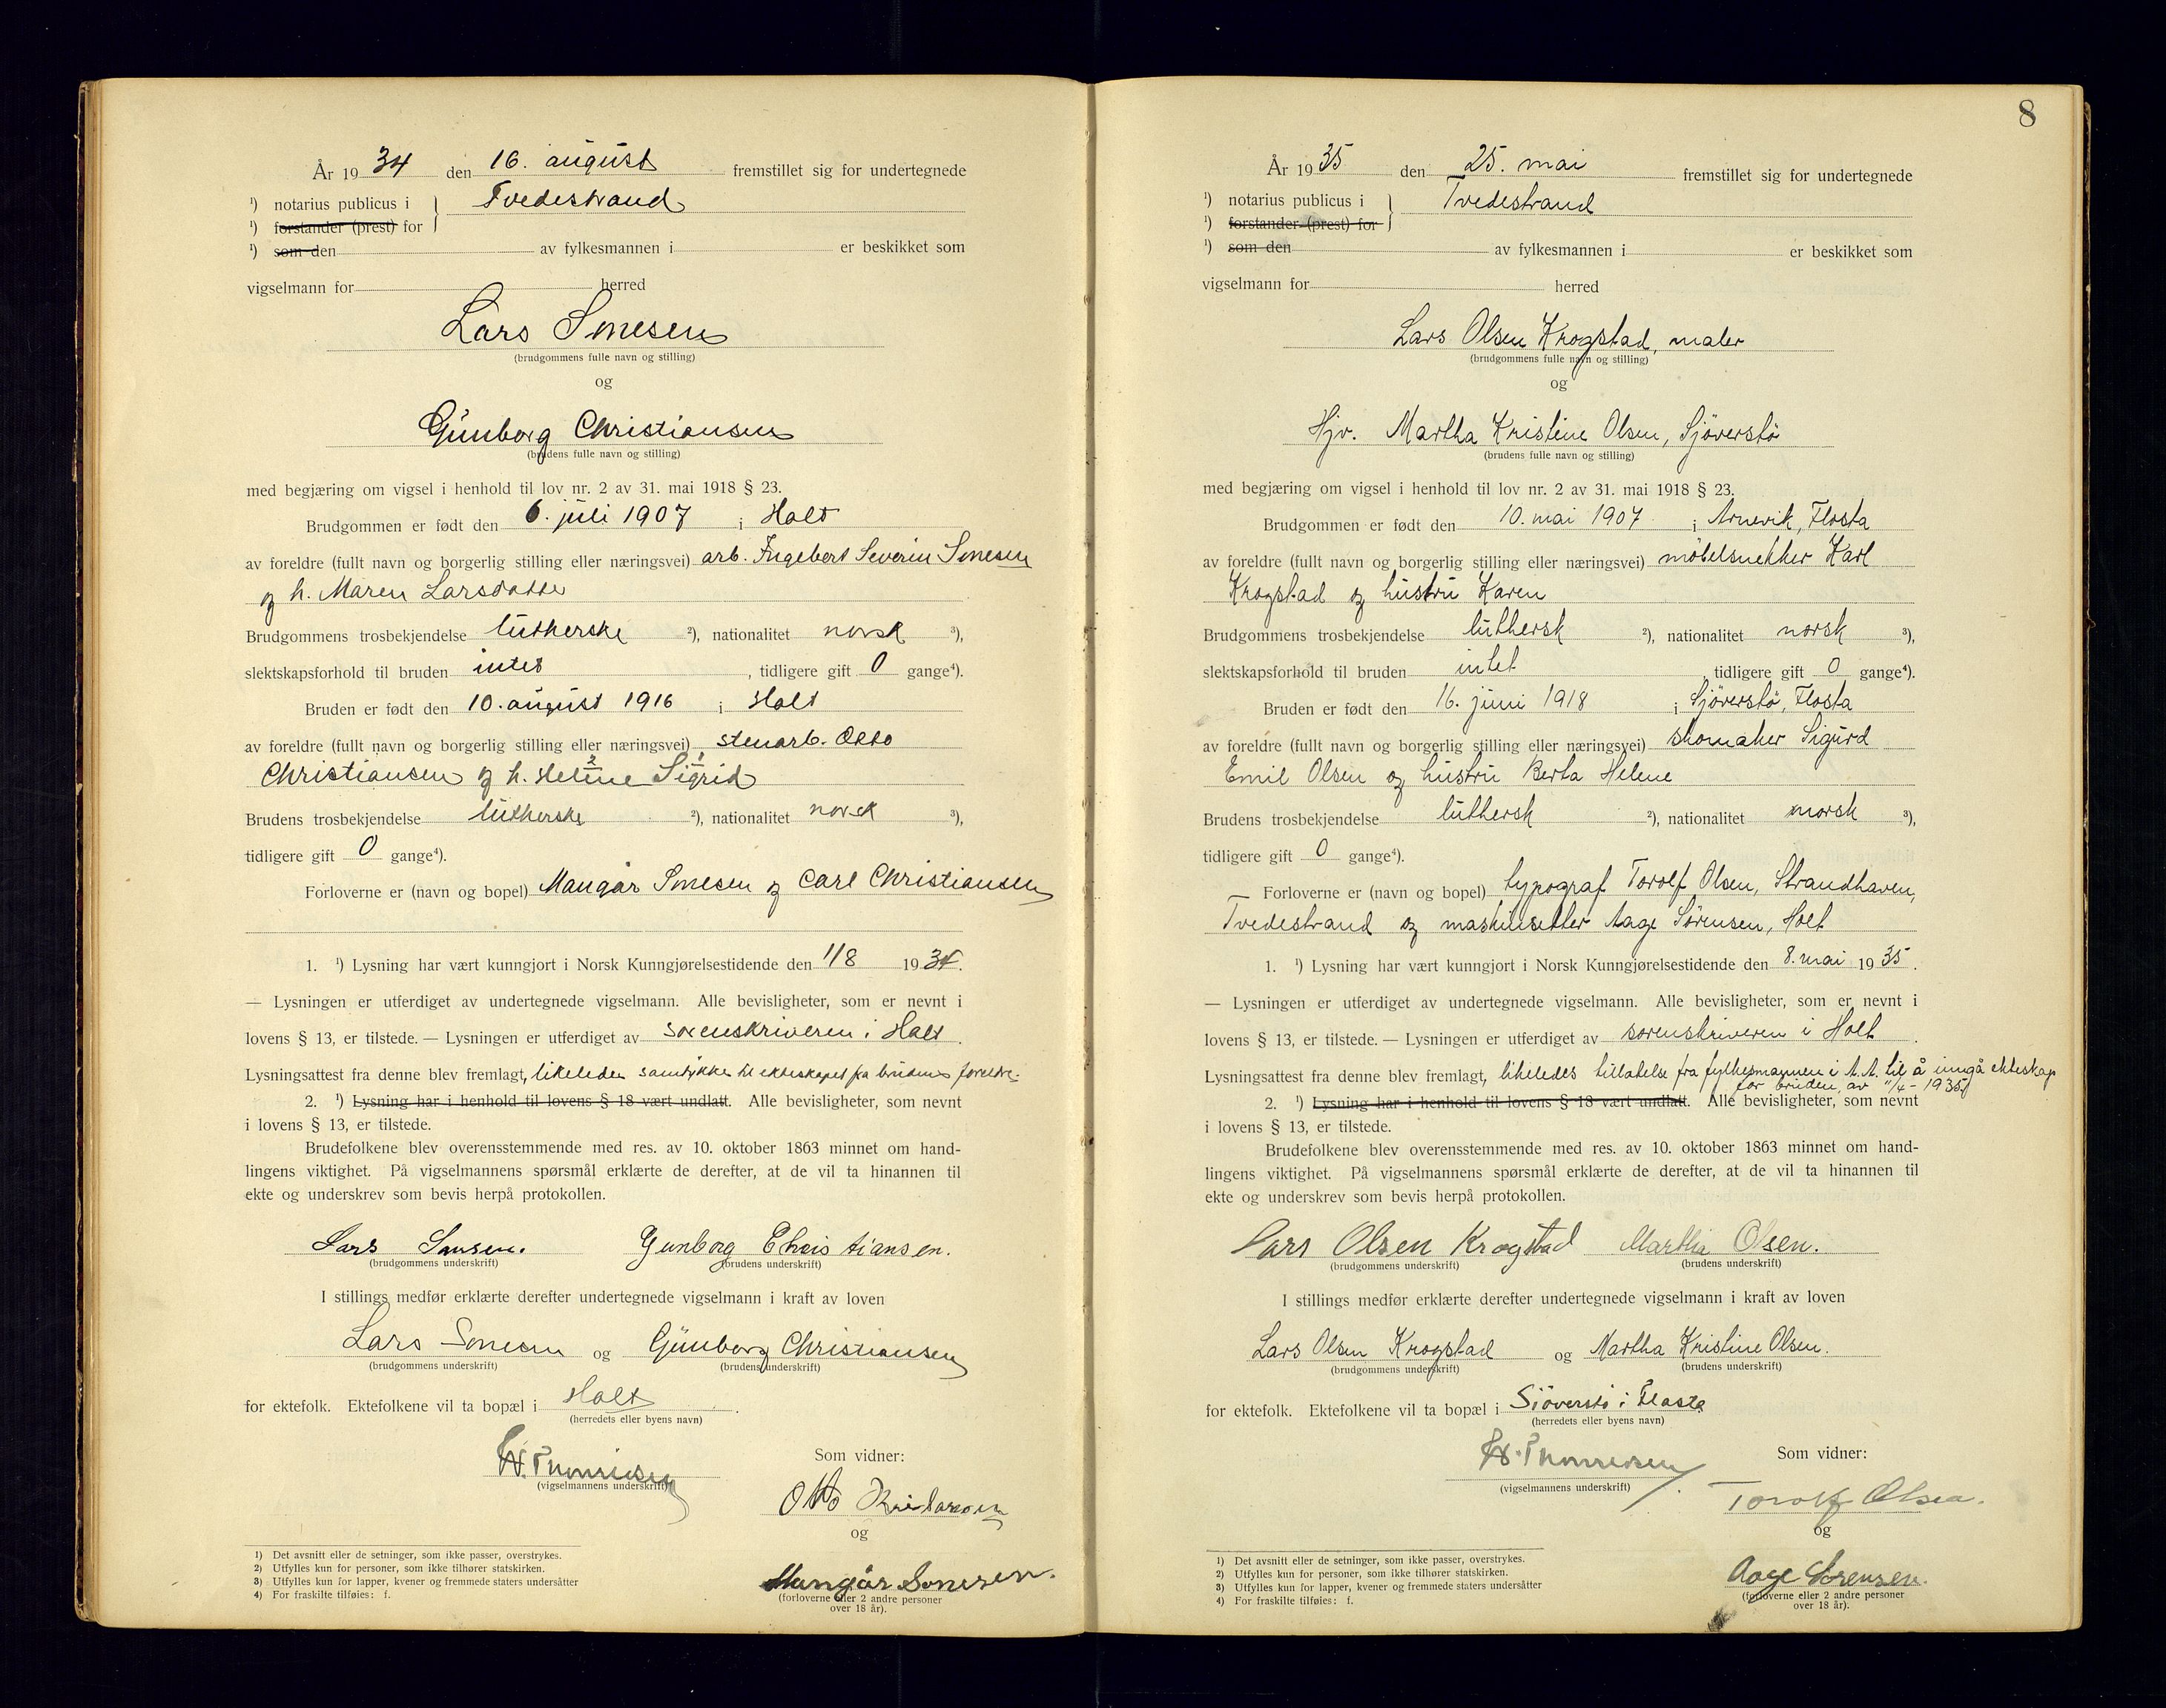 År 1934 den 16. august fremstillet sig for undertegnede
¹) notarius publicus i } Tvedestrand
¹) forstander (prest) for
¹) som den av fylkesmannen i er beskikket som
vigselmann for herred
Lars Smesen
(brudgommens fulle navn og stilling)
og
Gunborg Christiansen
(brudens fulle navn og stilling)
med begjæring om vigsel i henhold til lov nr. 2 av 31. mai 1918 § 23.
Brudgommen er født den 6. juli 1907 i Holt
av foreldre (fullt navn og borgerlig stilling eller næringsvei) arb. Ingebert Severin Smesen
og h. Maren Larsdatter
Brudgommens trosbekjendelse lutherske ²), nationalitet norsk ³),
slektskapsforhold til bruden intet, tidligere gift 0 gange⁴).
Bruden er født den 10. august 1916 i Holt
av foreldre (fullt navn og borgerlig stilling eller næringsvei) stenarb. Otto
Christiansen og h. Helene 2 Sigrid 1
Brudens trosbekjendelse lutherske ²), nationalitet norsk ³),
tidligere gift 0 gange⁴).
Forloverne er (navn og bopel) Mangår Smesen og Carl Christiansen
1. ¹) Lysning har vært kunngjort i Norsk Kunngjørelsestidende den 1/8 1934.
— Lysningen er utferdiget av undertegnede vigselmann. Alle bevisligheter, som er nevnt i
lovens § 13, er tilstede. — Lysningen er utferdiget av sorenskriveren i Holt.
Lysningsattest fra denne blev fremlagt, likeledes samtykke til ekteskapet fra brudens foreldre.
2. ¹) Lysning har i henhold til lovens § 18 vært undlatt. Alle bevisligheter, som nevnt
i lovens § 13, er tilstede.
Brudefolkene blev overensstemmende med res. av 10. oktober 1863 minnet om hand-
lingens viktighet. På vigselmannens spørsmål erklærte de derefter, at de vil ta hinannen til
ekte og underskrev som bevis herpå protokollen.
Lars Smesen. Gunborg Christiansen.
(brudgommens underskrift) (brudens underskrift)
I stillings medfør erklærte derefter undertegnede vigselmann i kraft av loven
Lars Smesen og Gunborg Christiansen
(brudgommens underskrift) (brudens underskrift)
for ektefolk. Ektefolkene vil ta bopæl i Holt.
(herredets eller byens navn)
Som vidner:
(vigselmannens underskrift)
Otto
og
Mangår Smesen.
(forloverne eller 2 andre personer
over 18 år).
1) Det avsnitt eller de setninger, som ikke passer, overstrykes.
2) Utfylles kun for personer, som ikke tilhører statskirken.
3) Utfylles kun for lapper, kvener og fremmede staters undersåtter
4) For fraskilte tilføies: f.
8
År 1935 den 25. mai fremstillet sig for undertegnede
¹) notarius publicus i } Tvedestrand
¹) forstander (prest) for
¹) som den av fylkesmannen i er beskikket som
vigselmann for herred
Lars Olsen Krogstad, maler
(brudgommens fulle navn og stilling)
og
Hjv. Martha Kristine Olsen, Sjöverstö
(brudens fulle navn og stilling)
med begjæring om vigsel i henhold til lov nr. 2 av 31. mai 1918 § 23.
Brudgommen er født den 10. mai 1907 i Arnevik, Flosta
av foreldre (fullt navn og borgerlig stilling eller næringsvei) möbelsnekker Karl
Krogstad og hustru Karen
Brudgommens trosbekjendelse luthersk ²), nationalitet norsk ³),
slektskapsforhold til bruden intet, tidligere gift 0 gange⁴).
Bruden er født den 16. juni 1918 i Sjöverstö, Flosta
av foreldre (fullt navn og borgerlig stilling eller næringsvei) skomaker Sigurd
Emil Olsen og hustru Berta Helene
Brudens trosbekjendelse luthersk ²), nationalitet norsk ³),
tidligere gift 0 gange⁴).
Forloverne er (navn og bopel) typograf Torolf Olsen, Strandhaven,
Tvedestrand og maskinsetter Aage Sörensen, Holt
1. ¹) Lysning har vært kunngjort i Norsk Kunngjørelsestidende den 8. mai 1935.
— Lysningen er utferdiget av undertegnede vigselmann. Alle bevisligheter, som er nevnt i
lovens § 13, er tilstede. — Lysningen er utferdiget av sorenskriveren i Holt.
Lysningsattest fra denne blev fremlagt, likeledes tillatelse fra fylkesmannen i A.A. til å inngå ekteskap
for bruden, av 11/4-1935
2. ¹) Lysning har i henhold til lovens § 18 vært undlatt. Alle bevisligheter, som nevnt
i lovens § 13, er tilstede.
Brudefolkene blev overensstemmende med res. av 10. oktober 1863 minnet om hand-
lingens viktighet. På vigselmannens spørsmål erklærte de derefter, at de vil ta hinannen til
ekte og underskrev som bevis herpå protokollen.
Lars Olsen Krogstad Martha Olsen.
(brudgommens underskrift) (brudens underskrift)
I stillings medfør erklærte derefter undertegnede vigselmann i kraft av loven
Lars Olsen Krogstad og Martha Kristine Olsen.
(brudgommens underskrift) (brudens underskrift)
for ektefolk. Ektefolkene vil ta bopæl i Sjöverstö i Flosta
(herredets eller byens navn)
Som vidner:
(vigselmannens underskrift)
Torolf Olsen.
og
Aage Sørensen.
(forloverne eller 2 andre personer
over 18 år).
1) Det avsnitt eller de setninger, som ikke passer, overstrykes.
2) Utfylles kun for personer, som ikke tilhører statskirken.
3) Utfylles kun for lapper, kvener og fremmede staters undersåtter
4) For fraskilte tilføies: f.